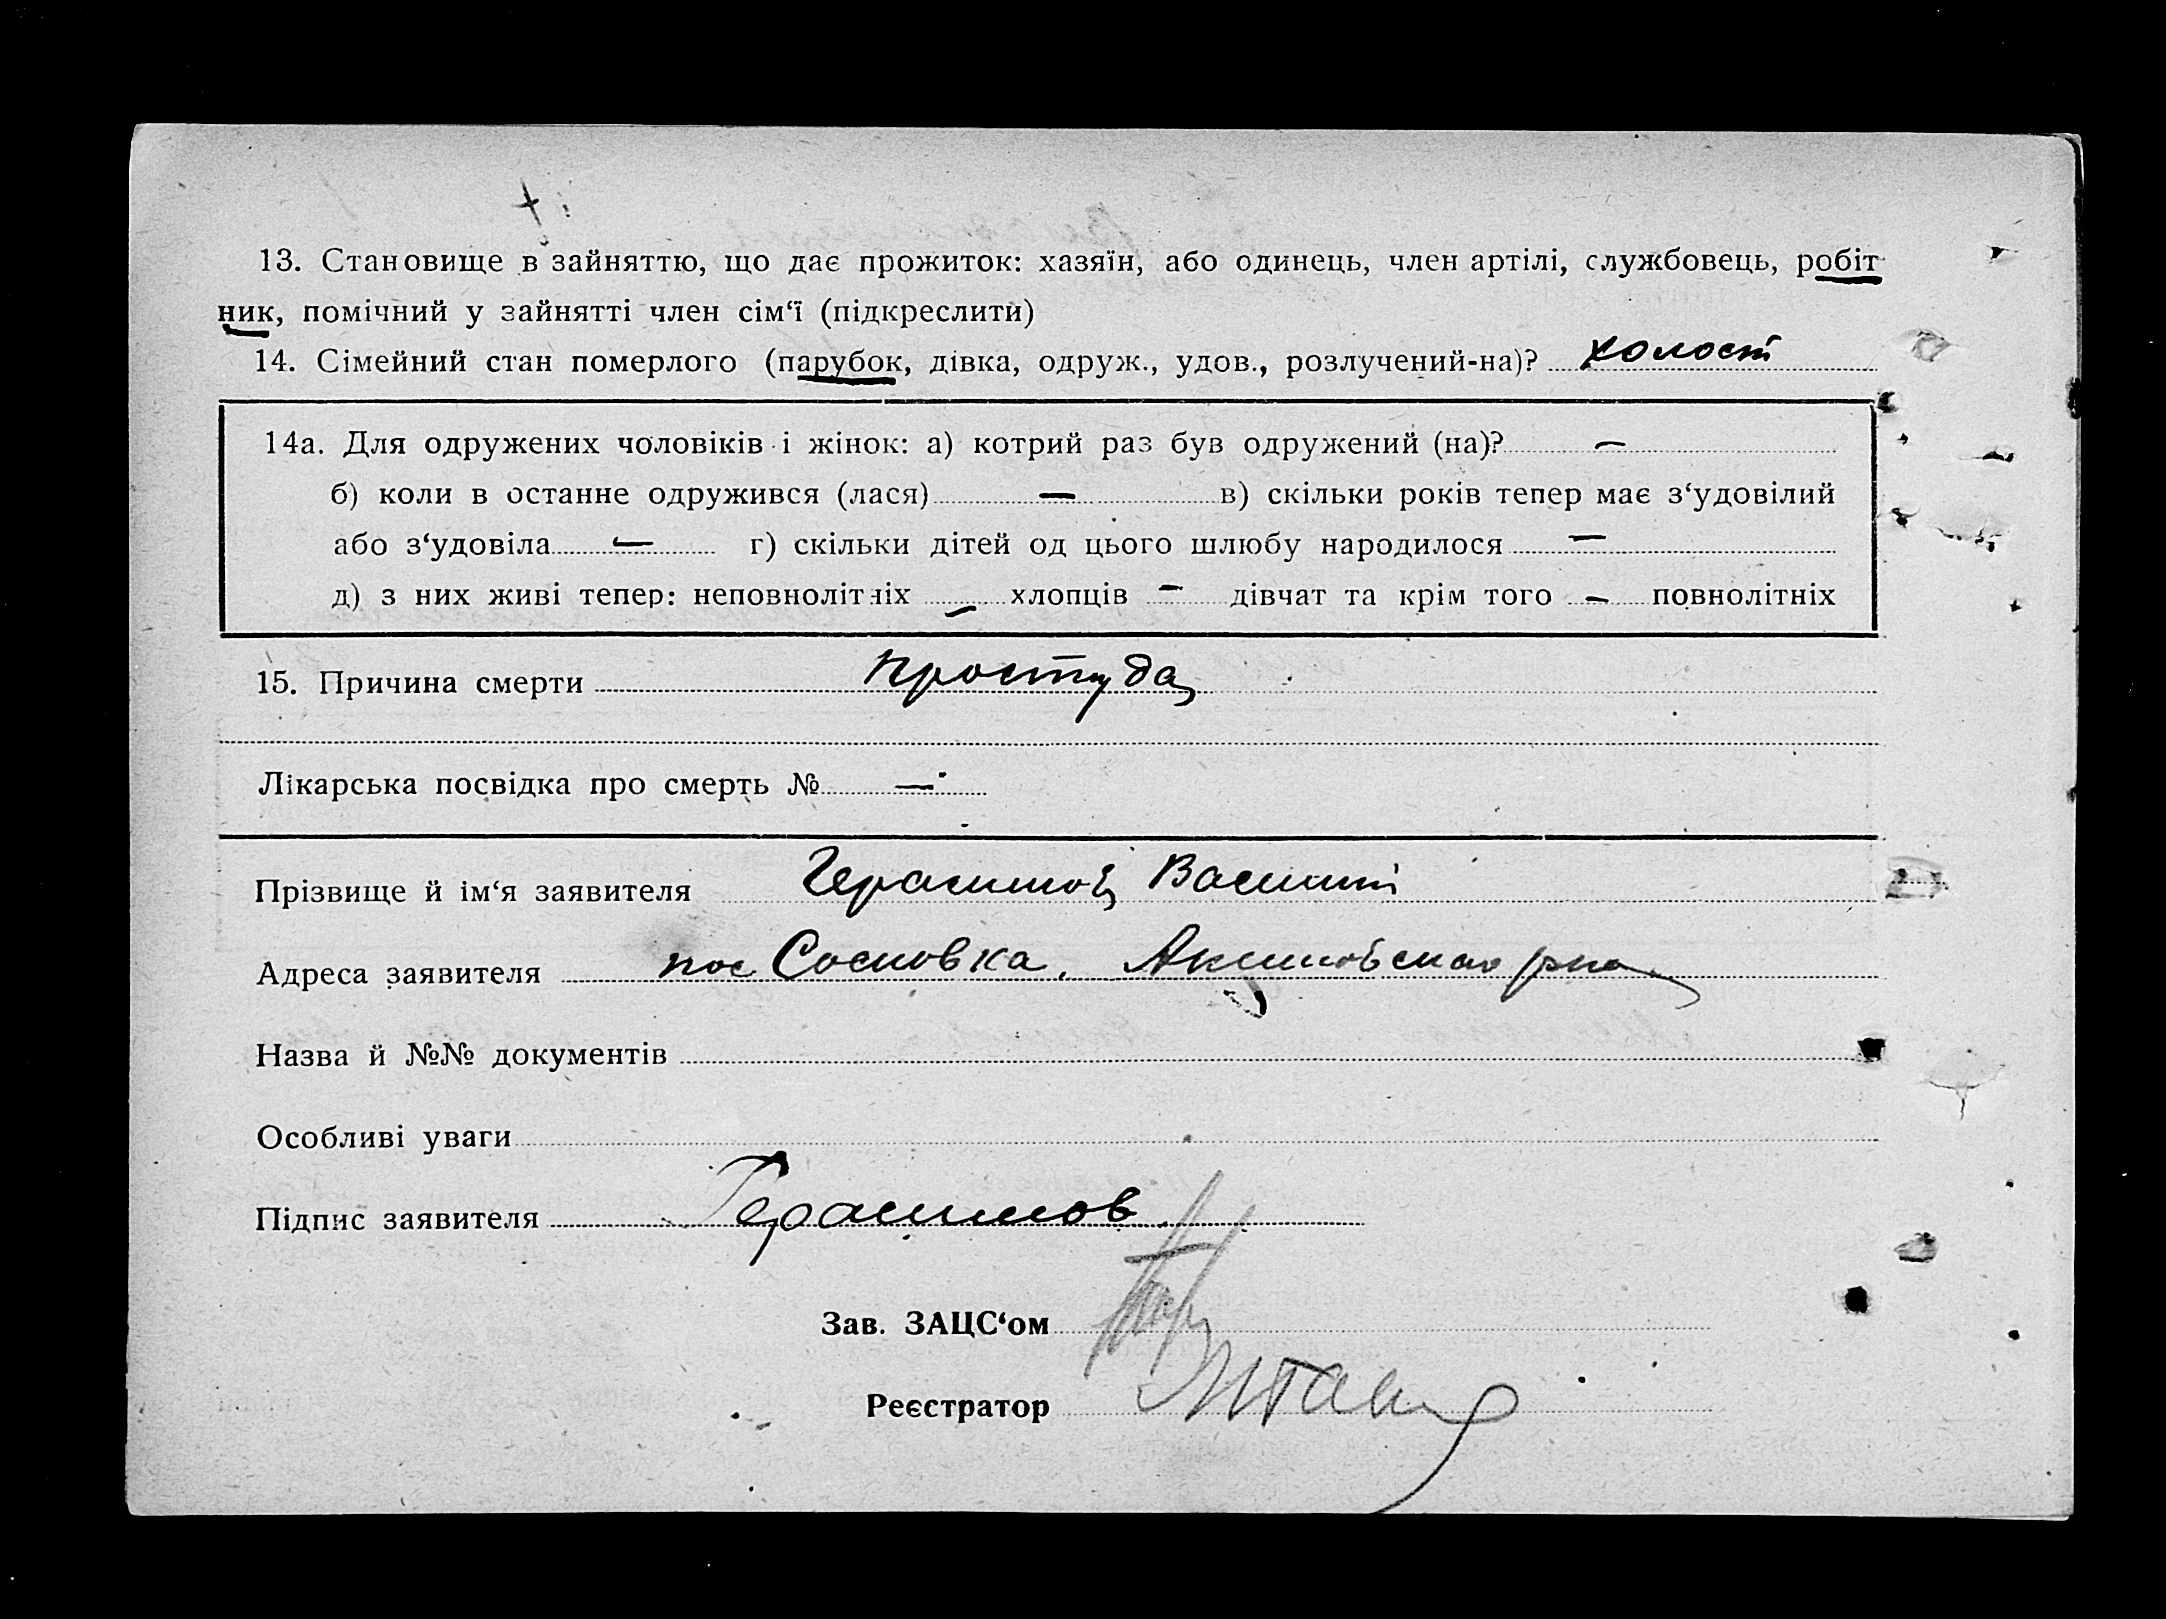 13. Становище в зайняттю, що дає прожиток: хазяїн, або одинець, член артілі, службовець, робіт
ник, помічний у зайнятті член сім‘ї (підкреслити)
14. Сімейний стан померлого (парубок, дівка, одруж., удов., розлучений-на)? холост
14а. Для одружених чоловіків і жінок: а) котрий раз був одружений (на)? —
б) коли в останне одружився (лася) — в) скільки років тепер має з‘удовілий
або з‘удовіла — г) скільки дітей од цього шлюбу народилося —
д) з них живі тепер: неповнолітніх — хлопців — дівчат та крім того — повнолітніх
15. Причина смерти простуда
Лікарська посвідка про смерть № —
Прізвище й ім‘я заявителя Герасимов Василий
Адреса заявителя пос Сосновка,
Назва й №№ документів
Особливі уваги
Підпис заявителя Герасимов
Зав. ЗАЦС‘ом
Реєстратор